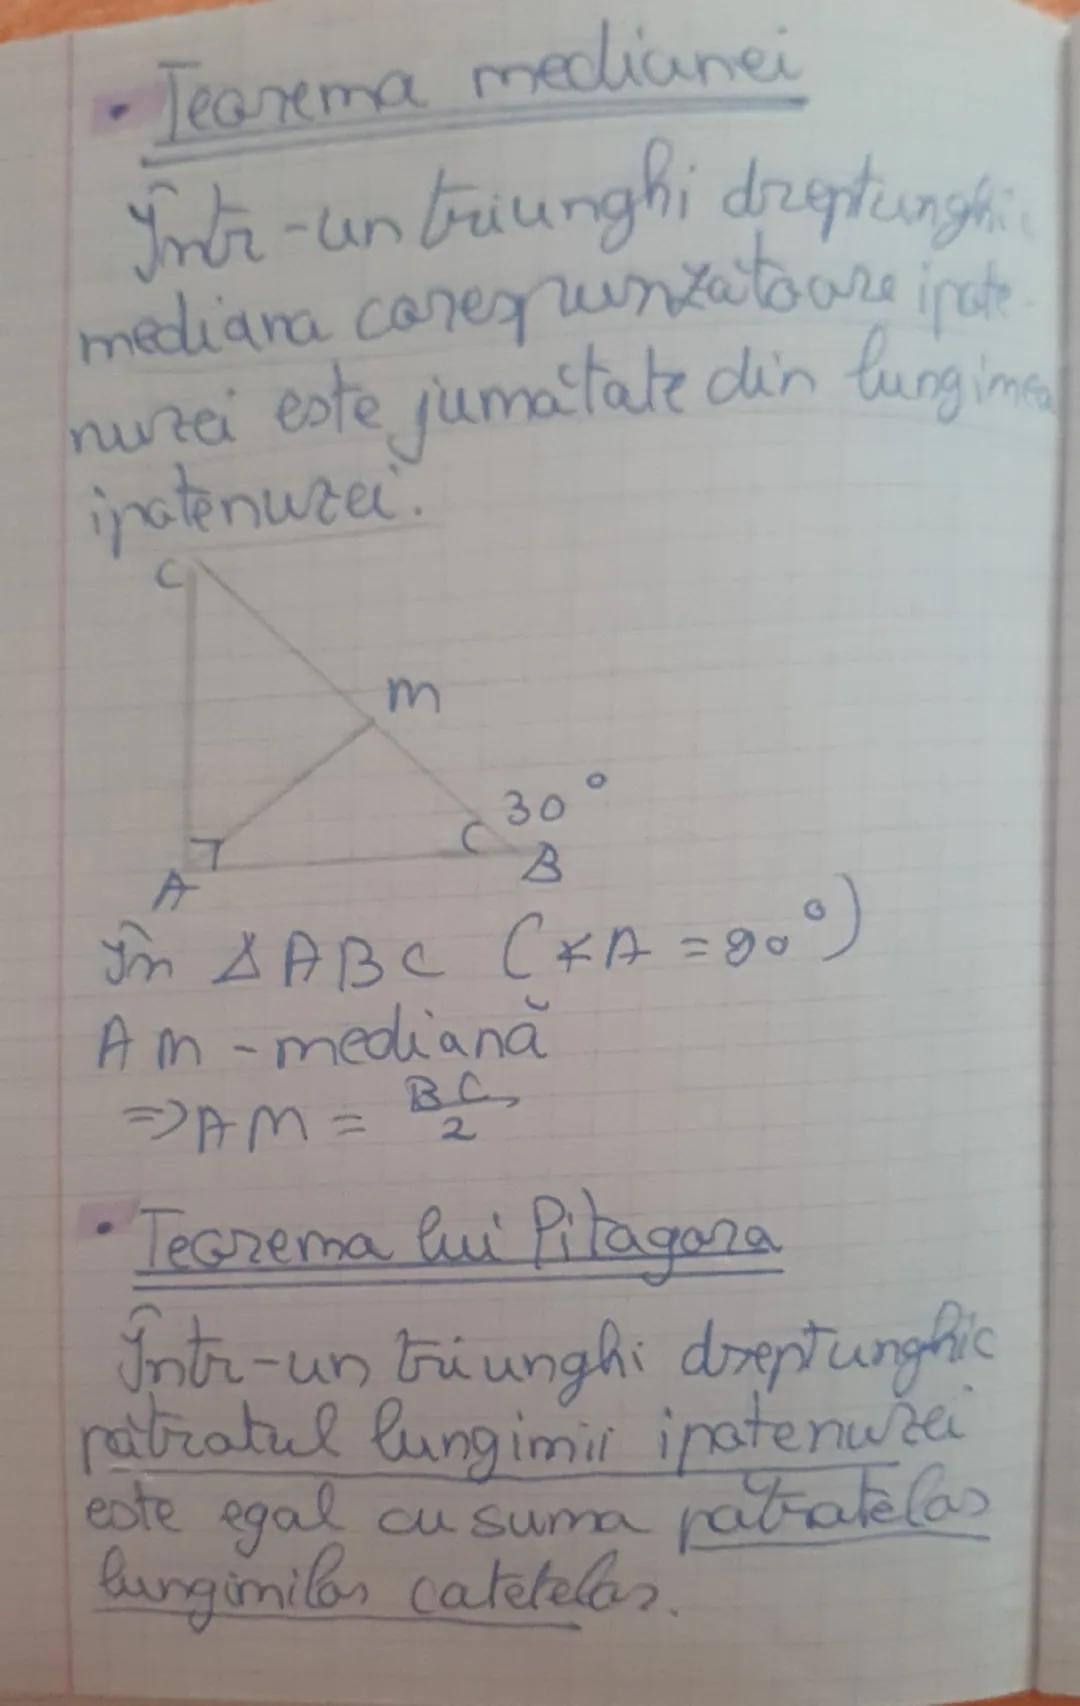 • Teorema medianei
Într-un triunghi dreptunghi
mediana corespunzatoare ipote-
nuzei este jumătate din lungimea
ipotenuzei.
C
M
30°
A
B
În ΔABC (∢A = 90°)
AM - mediană
=> AM = BC/2
• Teorema lui Pitagora
Într-un triunghi dreptunghic
pătratul lungimii ipotenuzei
este egal cu suma pătratelor
lungimilor catetelor.